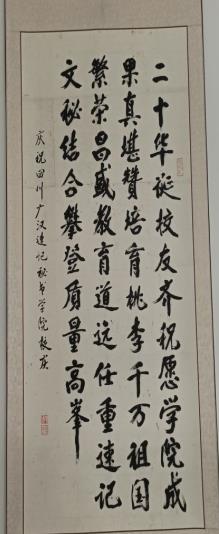 二十华诞校友齐祝愿学院成
果真堪赞培育桃李千万祖国
繁荣昌盛教育道远任重速记
文秘结合攀登质量高峰
庆祝四川广汉速记秘书学院校庆